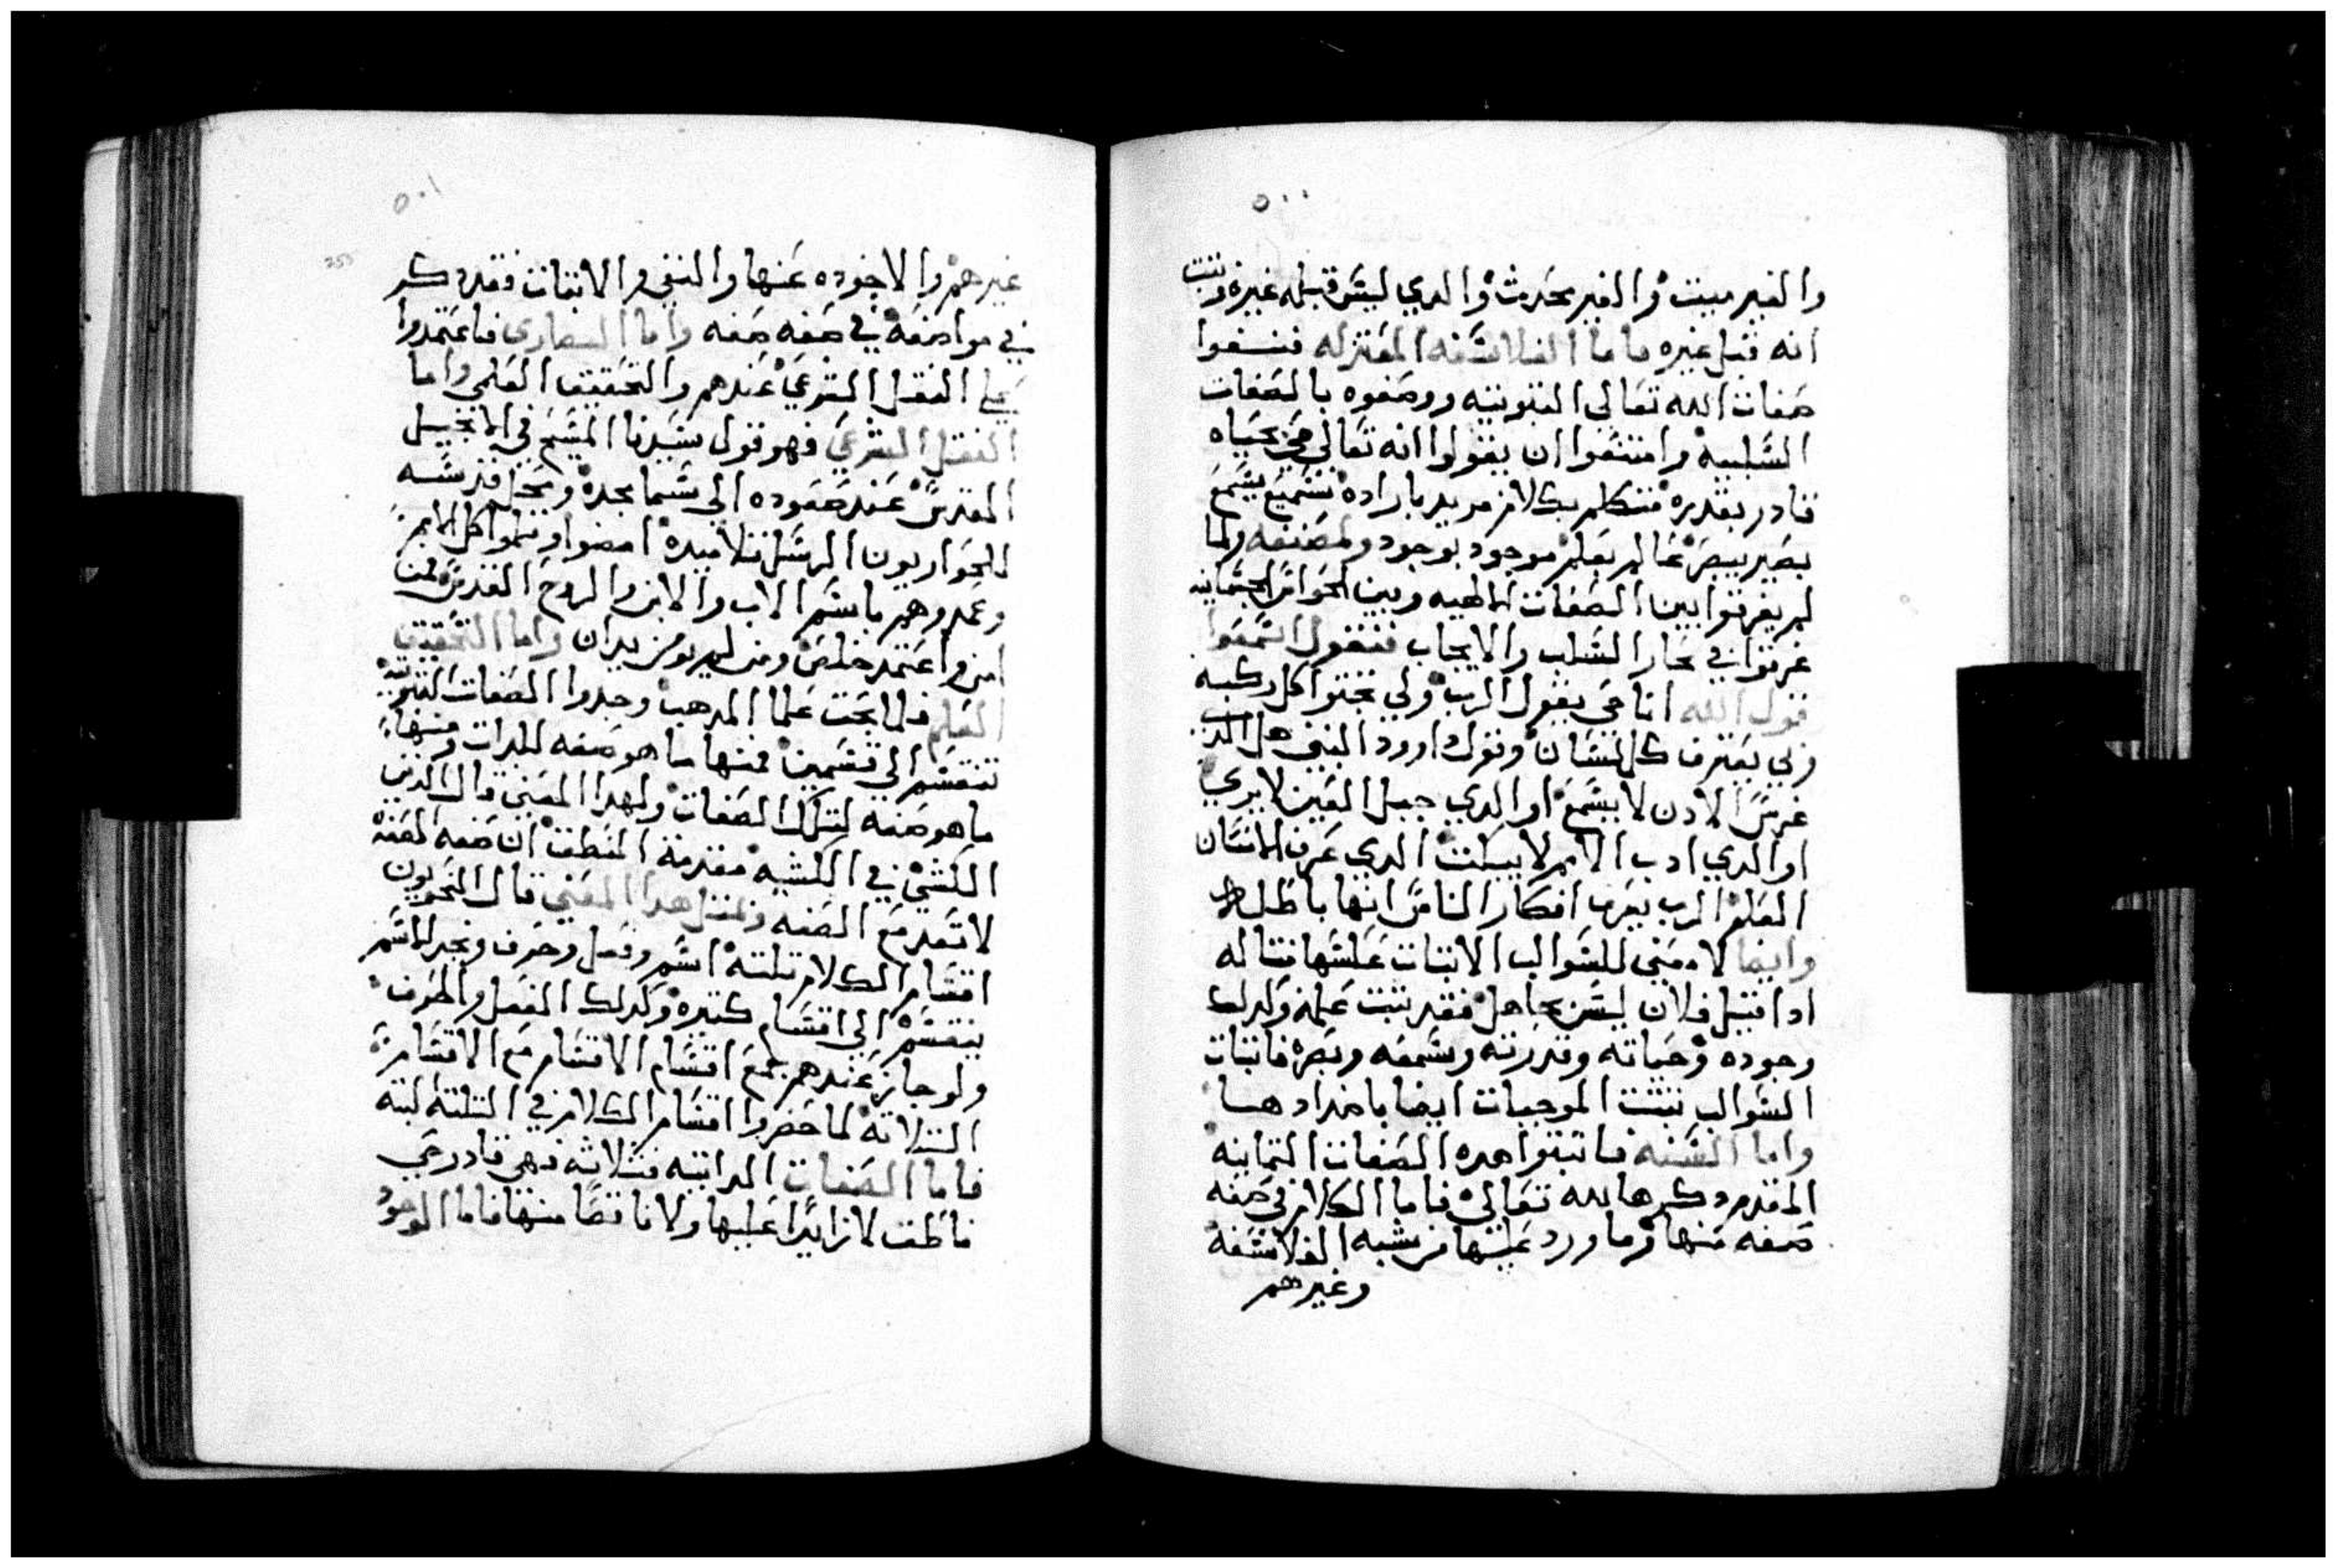 ٥٠٠
والغير ميت والغير محدث والدي ليس قبله غيره وتبت
انه قبل غيره فاما الفلاسفه المعتزله فنسفوا
صفات الله تعالي التبوتيه ووصفوه بالصفات
السلبيه وامتنعوا ان يقولوا انه تعالي حي بحياه
قادر بقدره متكلم بكلام مريد باراده سميع بسمع
بصير ببصر عالم بعلم موجود بوجود ولصنعه ولما
لم يفرقوا بين الصفات الالهيه وبين الحواس الجسمانيه
غرقوا في بحار السلب والايجاب فنقول اسمعوا
قول الله انا حي يقول الرب ولي تجتوا كل ركبه
ولي يعترف كل لسان وقول داوود النبي هل الدي
غرس الادن لا يسمع او الدي جبل العين لا يري
او الدي ادب الامم لا يبكت الدي عرف الانسان
العلم الرب يعرف افكار الناس انها باطله
وايضا لا معني للسوالب الا تبات عكسها متاله
ادا قيل فلان ليس بجاهل فقد تبت علمه وكدلك
وجوده وحياته وقدرته وسمعه وبصره فاتبات
السوالب تتبت الموجبات ايضا باضدادها
واما السنه فاتبتوا هده الصفات التمانيه
المقدم دكرها لله تعالي فاما الكلام في صفه
صفه منها وما ورد عليها من شبه الفلاسفه
وغيرهم
٥٠١
غيرهم والاجوده عنها والنفي والاتبات فقد دكر
في مواضعه في صفه صفه واما النصاري فاعتمدوا
علي النقل الشرعي عندهم والتحقيق العلمي واما
النقل الشرعي فهو قول سيدنا المسيح في الانجيل
المقدس عند صعوده الي سما مجده ومحل قدسه
للحواريون الرسل تلاميده امضوا وتلمدوا كل الامم
وعمدوهم باسم الاب والابن والروح القدس فمن
امن واعتمد خلص ومن لم يومن يدان واما التحقيق
العلمي فلما بحت علما المدهب وجدوا الصفات التبوتيه
تنقسم الي قسمين فمنها ما هو صفه للدات ومنها
ما هو صفه لتلك الصفات ولهدا المعني قال الدين
الكشي في الكشيه مقدمة المنطق ان صفه الصفه
لا تعد مع الصفه ولمتل هدا المعني قال النحويون
اقسام الكلام تلته اسم وفعل وحرف ونجد الاسم
ينقسم الي اقسام كتيره وكدلك الفعل والحرف
ولو جاز عندهم جمع اقسام الاقسام مع الاقسام
التلاته لما حصروا اقسام الكلام في التلته لبته
فاما الصفات الداتيه فتلاته فهي قادر حي
ناطق لا زايدا عليها ولا ناقصا منها فاما الوجود